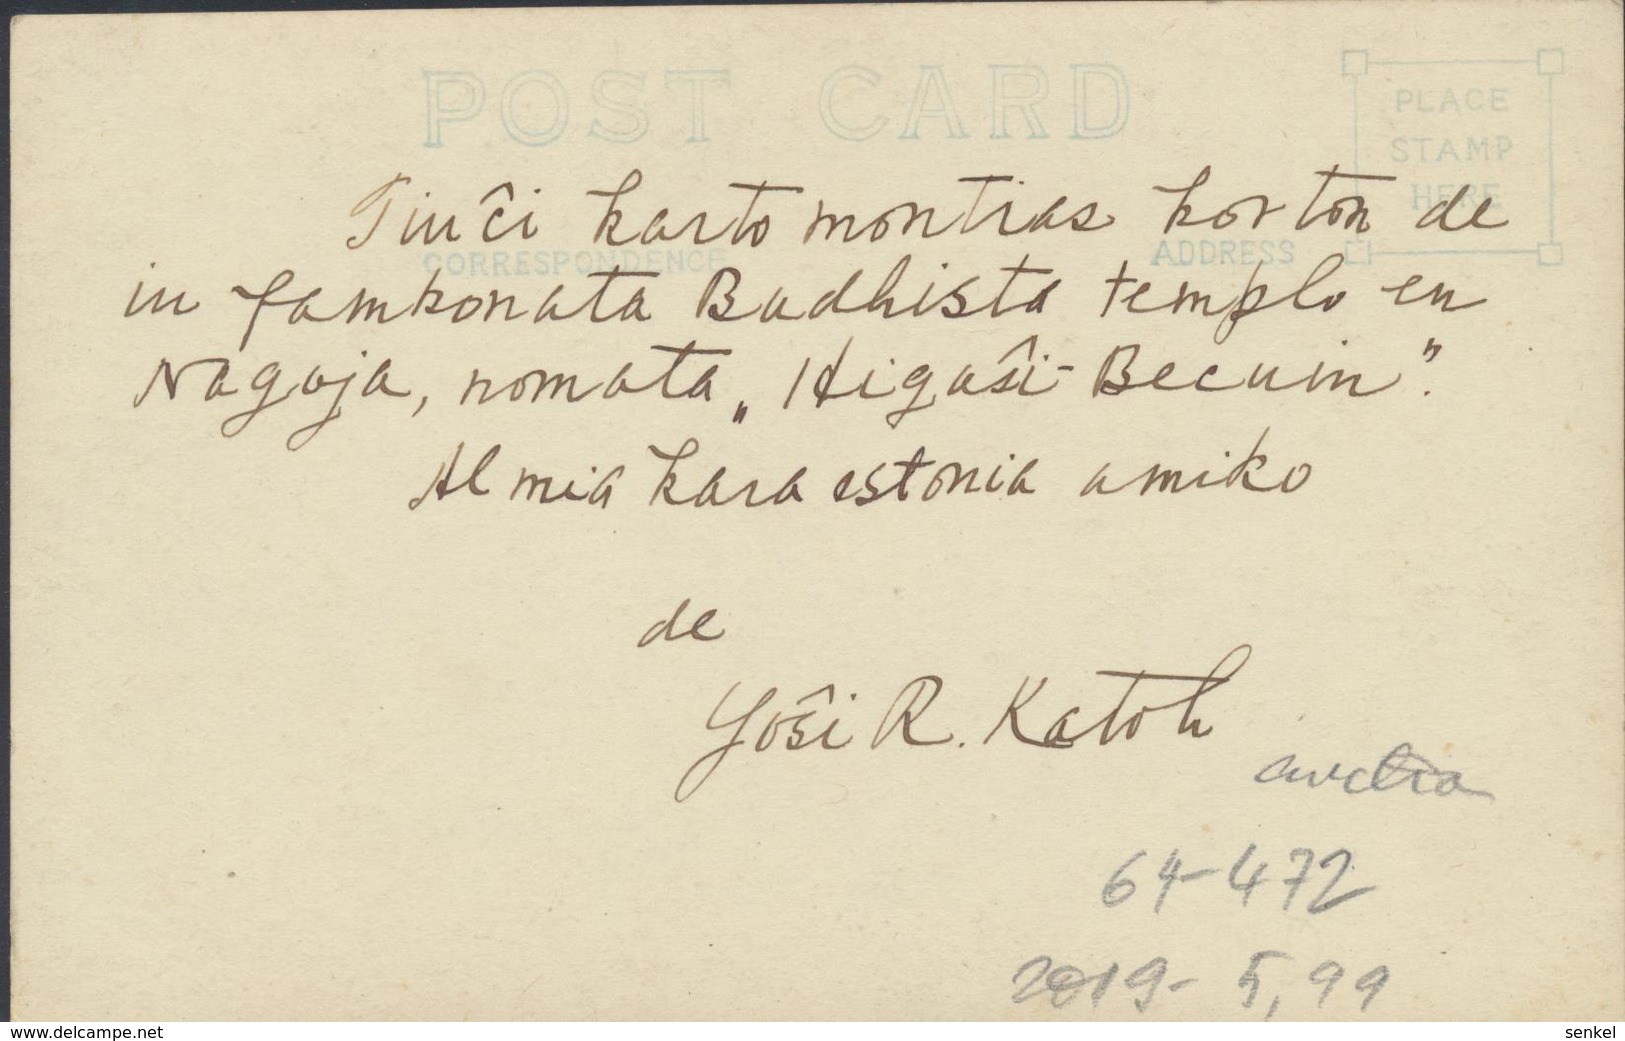 POST CARD
PLACE
STAMP
HERE
Tiuĉi karto montras korton de
CORRESPONDENCE
ADDRESS
in famkonata Budhista templo en
Nagoja, nomata „Higaŝi-Becuin”.
Al mia kara estonia amiko
de
Yoŝi R. Katoh
64-472
2019- 5,99
www.delcampe.net
senkel